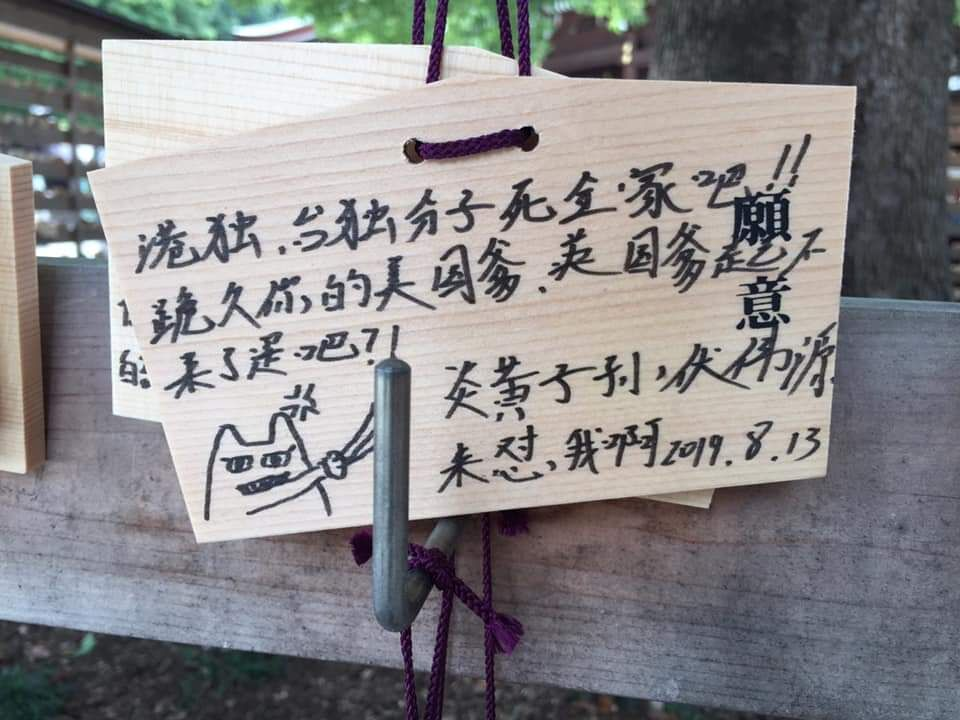 港独、台独分子死全家吧!!
跪久你,的美国爹、英国爹起不
来了是吧?!
炎黄子孙,伏伟源
来怼,我啊 2019.8.13
願意
的